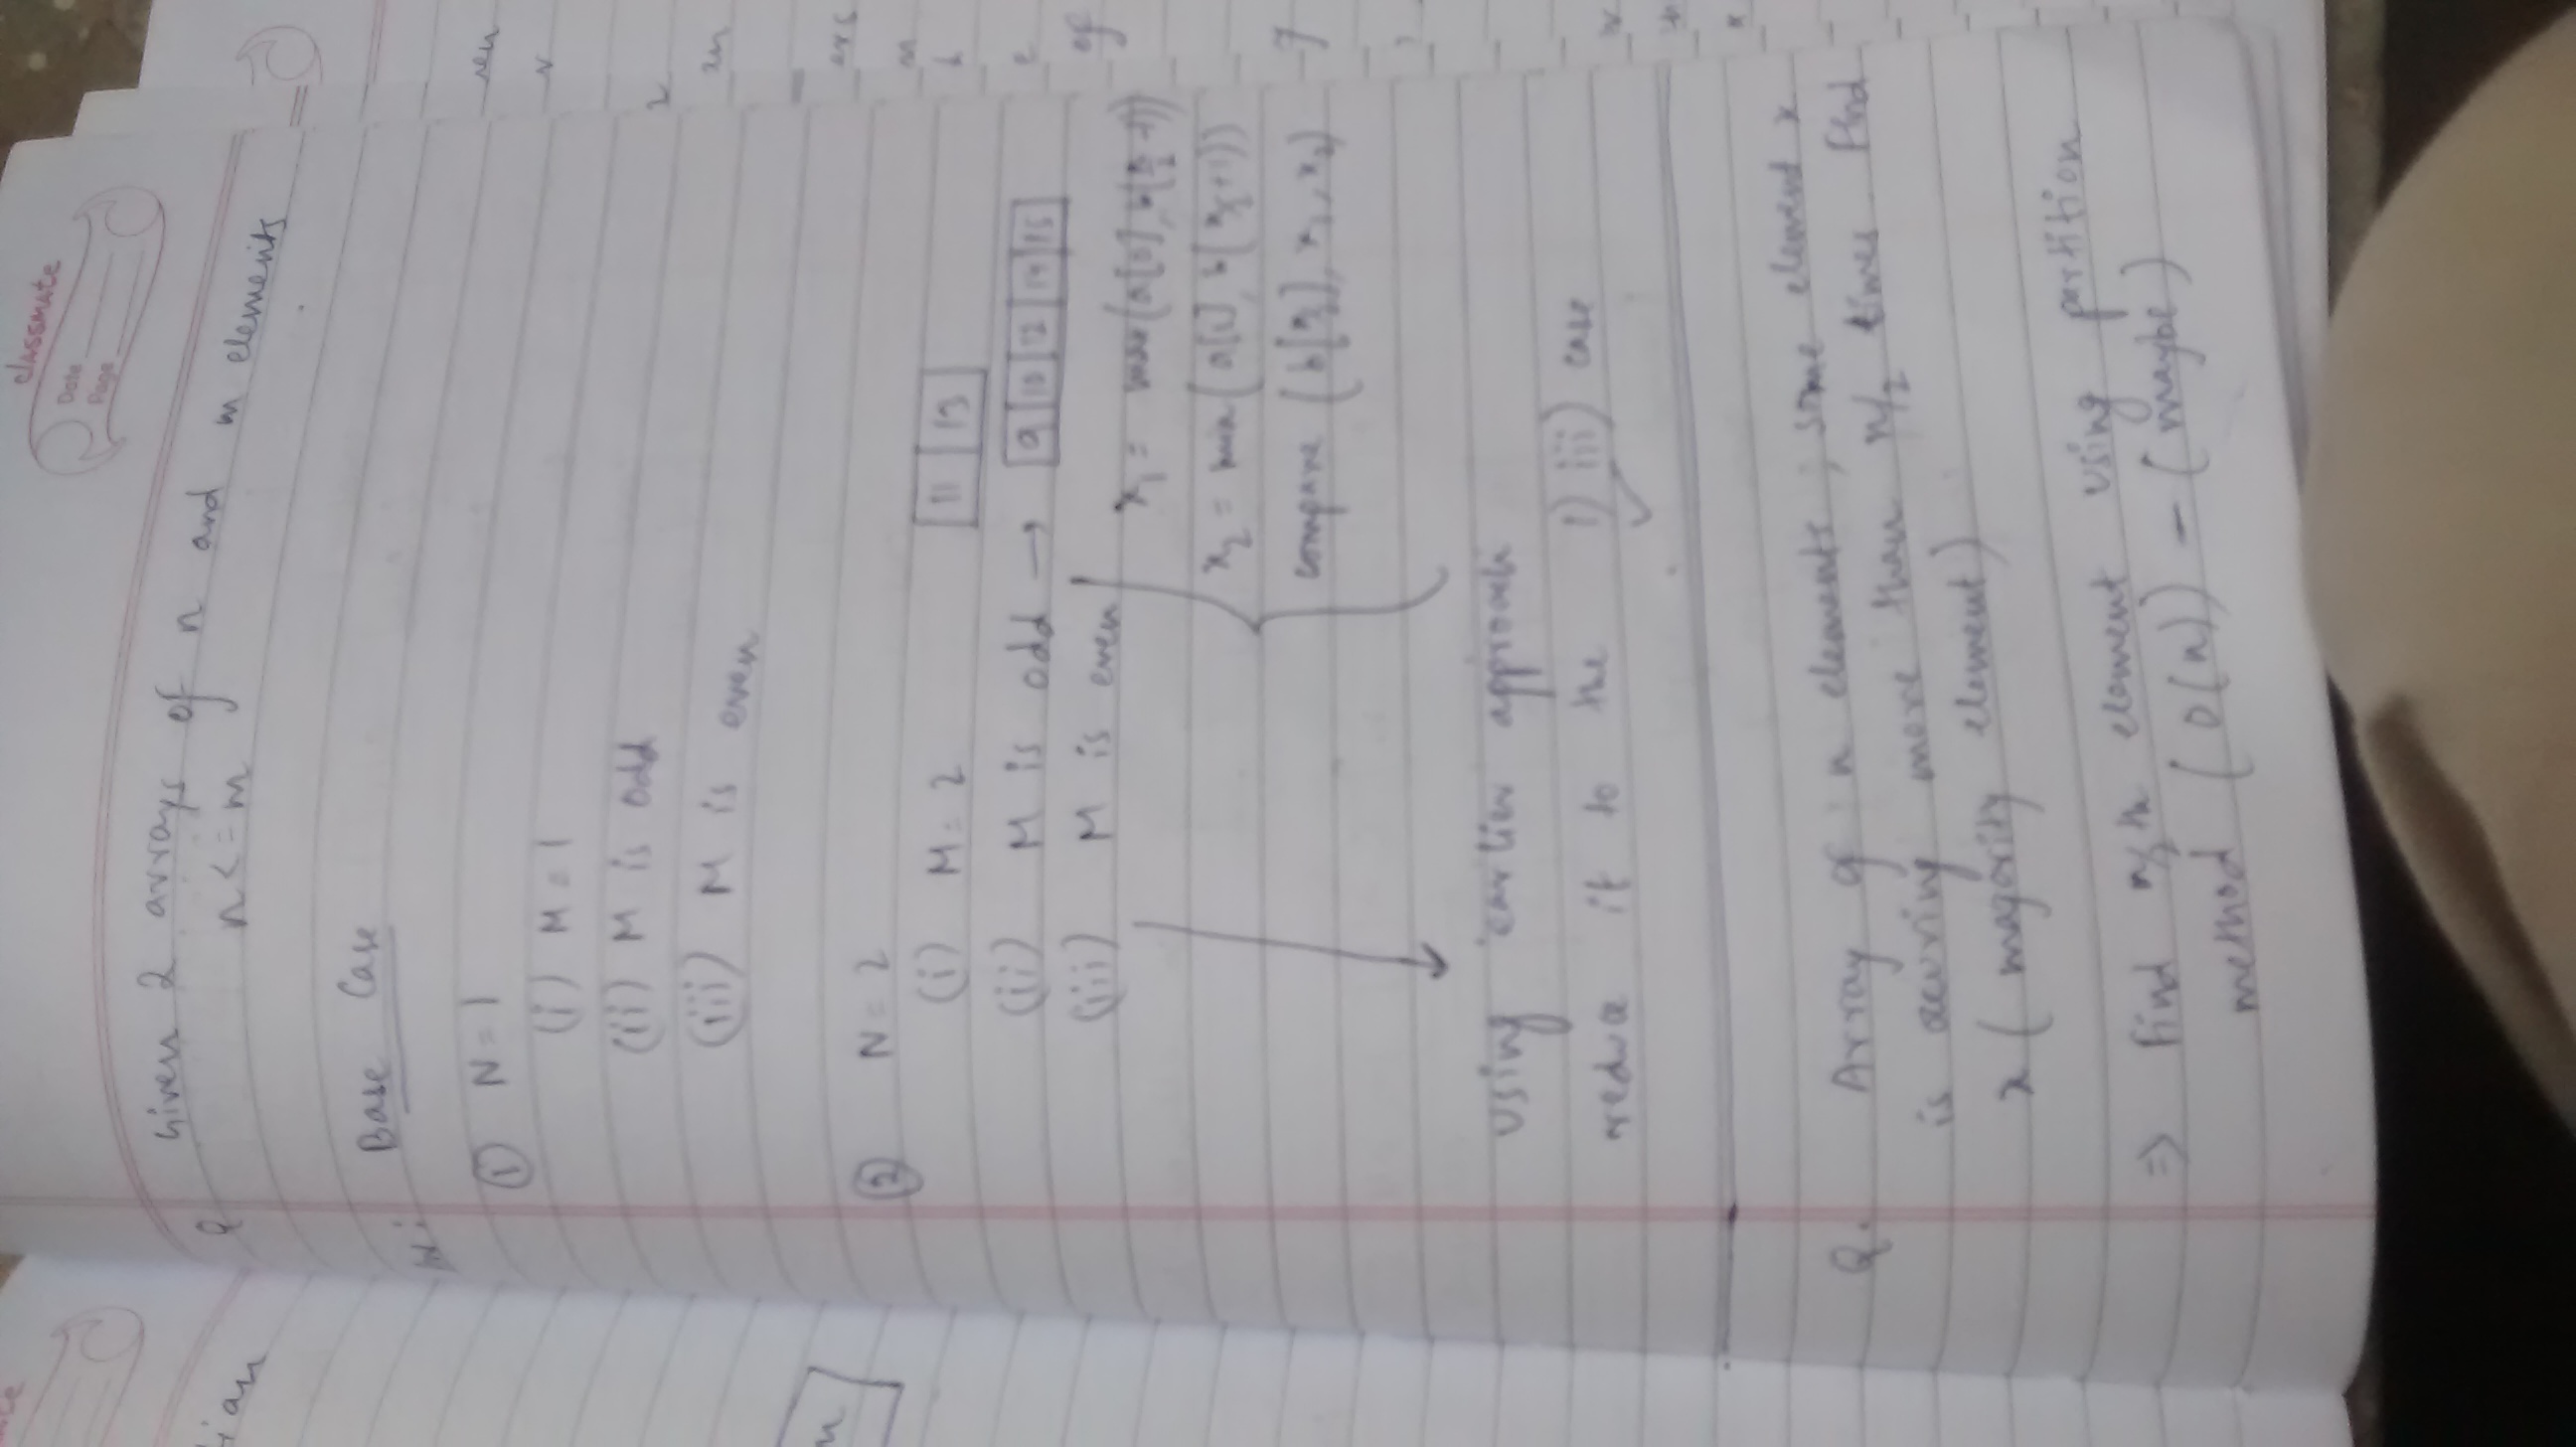 classmate
Date
Page
Q Given 2 arrays of n and m elements
n <= m
Base Case
N:
(1) N = 1
(i) M = 1
(ii) M is odd
(iii) M is even
(2) N = 2
(i) M = 2 11 13
(ii) M is odd → 9 10 12 14 15
(iii) M is even x1 = max(a[0], b[n/2 -1])
x2 = min(a[1], b[n/2+1])
compare (b[n/2], x1, x2)
using earlier approach
reduce it to the 1) iii) case
Q. Array of n elements; some element x
is occuring more than n/2 times. find
x (magority element)
⇒ find n/2 th element using partition
method (O(n)) - (maybe)